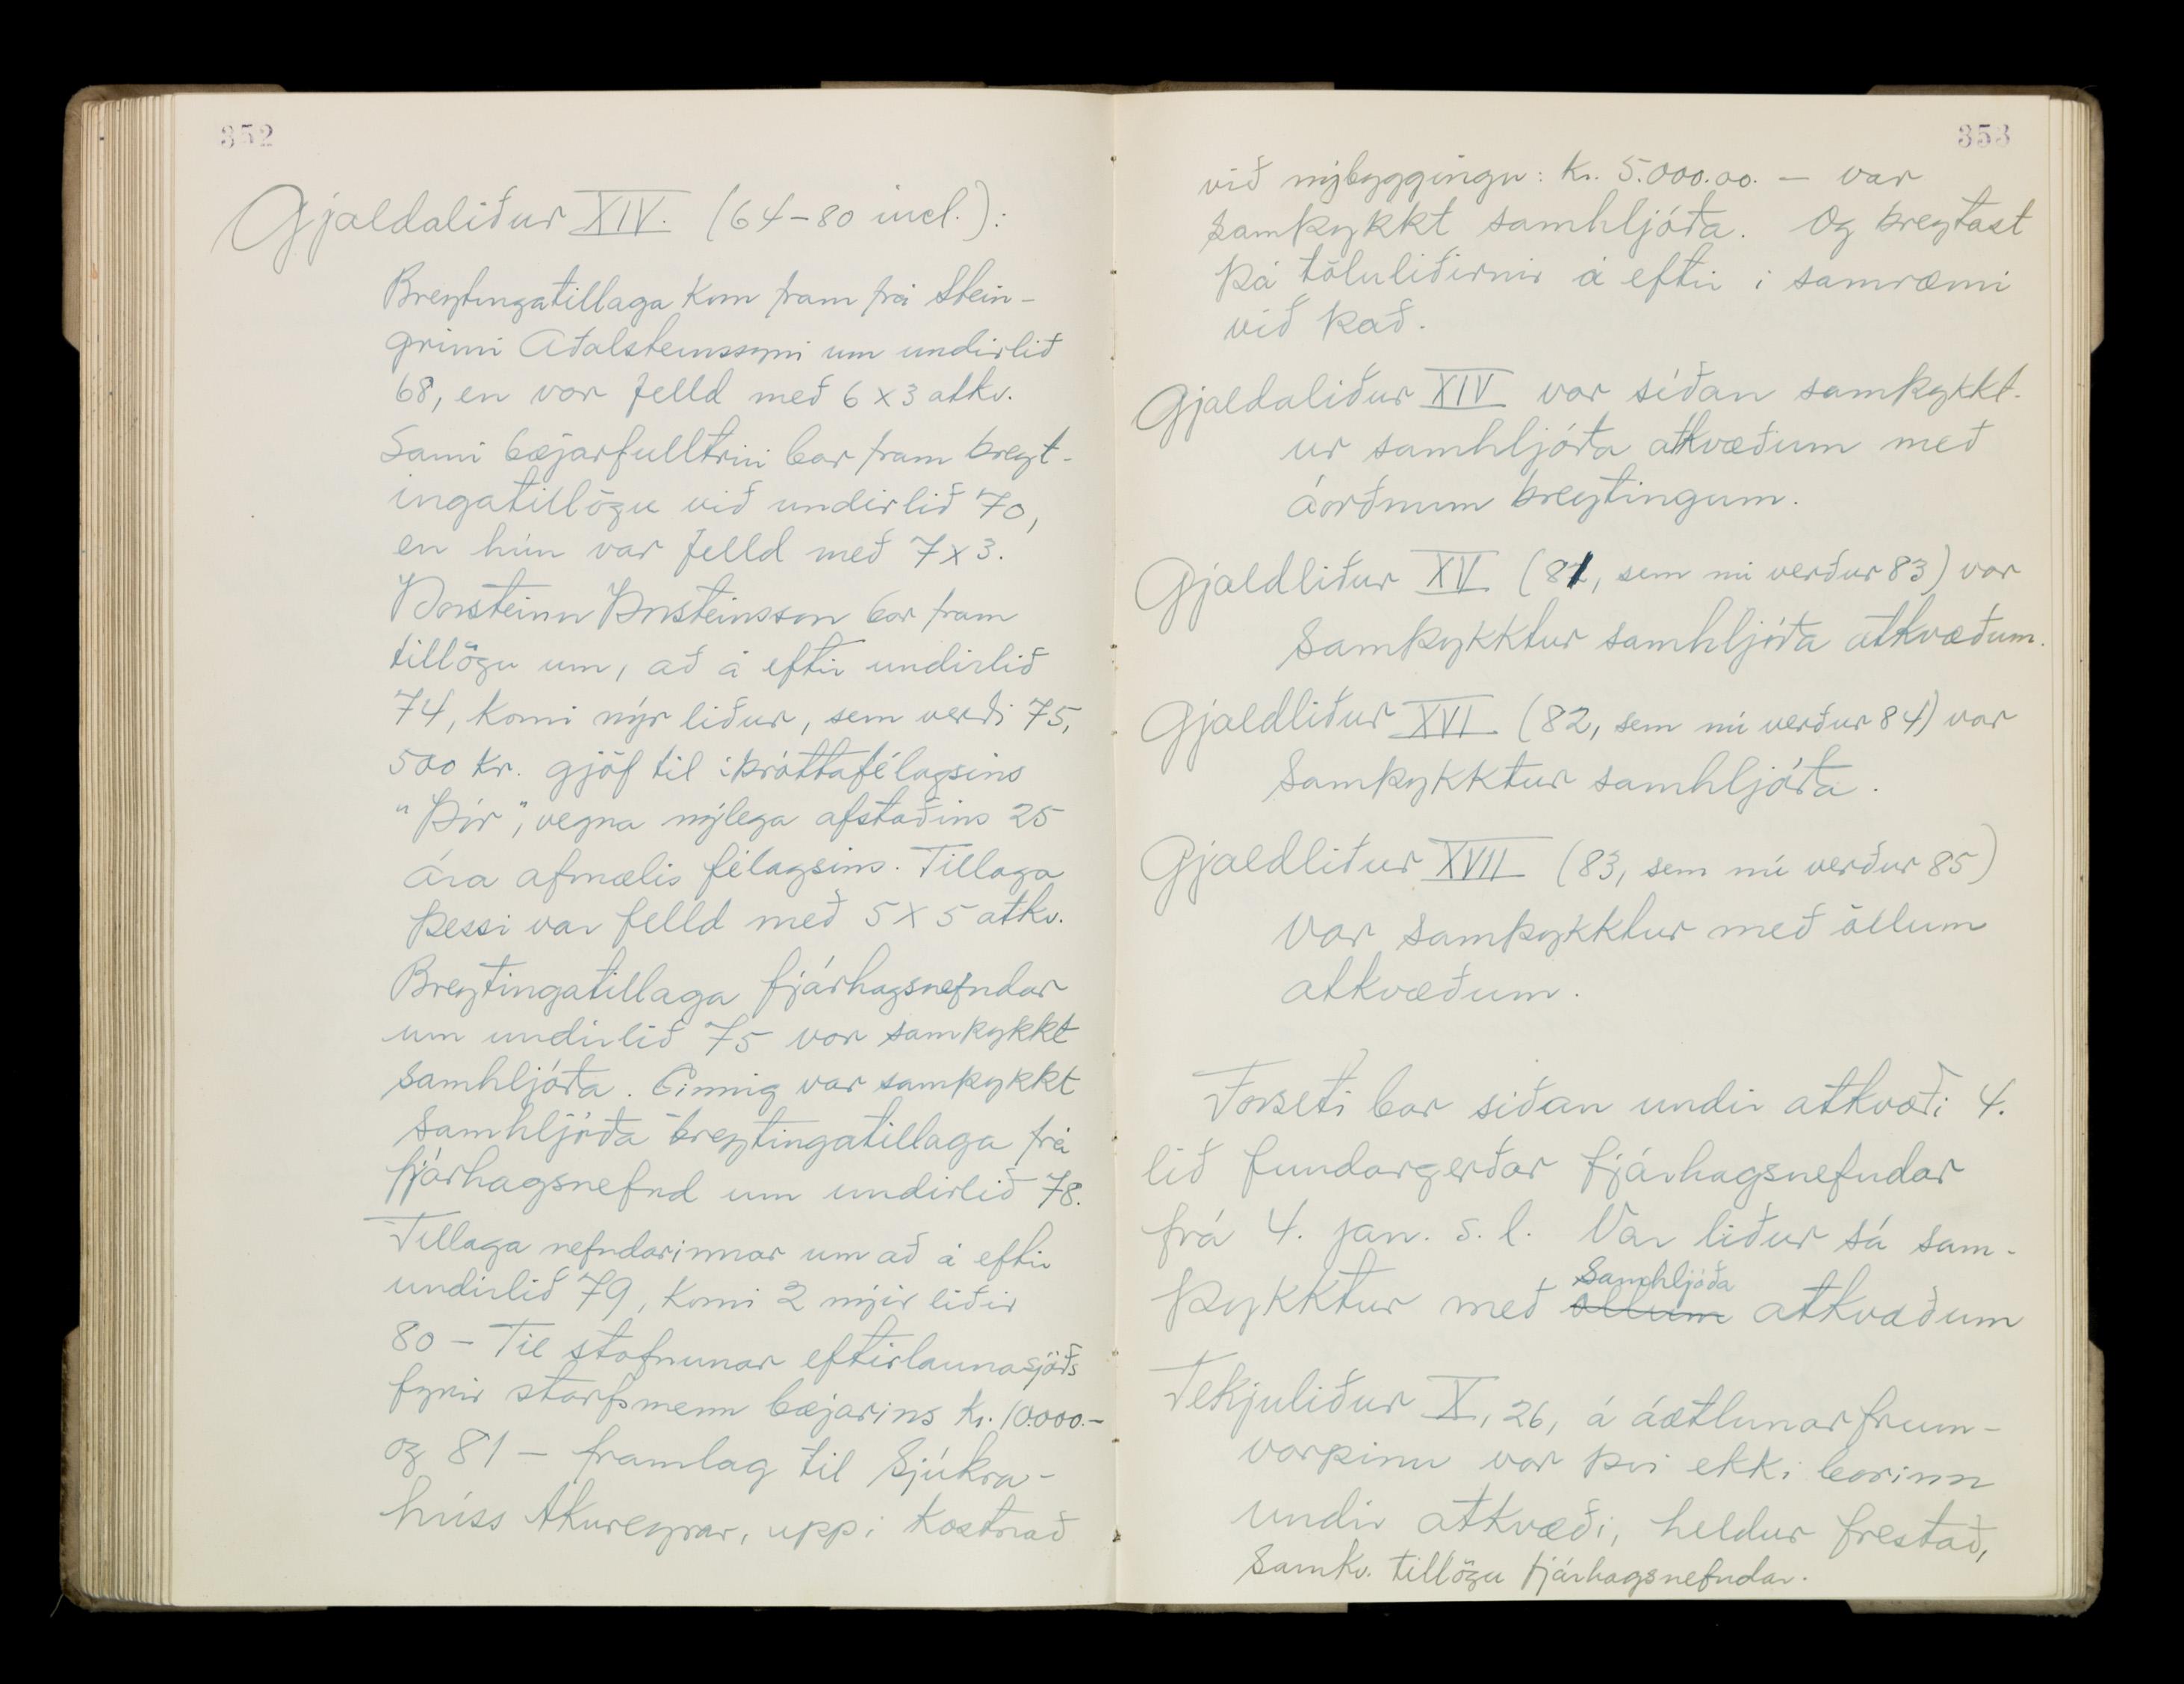 352
Gjaldaliður XIV. (64-80 incl.):
Breytingatillaga kom fram frá Stein-
grími Aðalsteinssyni um undirlið
68, en var felld með 6 x 3 atkv.
Sami bæjarfulltrúi bar fram breyt-
ingatillögu við undirlið 70,
en hún var felld með 7 x 3.
Þorsteinn Þorsteinsson bar fram
tillögu um, að á eftir undirlið
74, komi nýr liður, sem verði 75,
500 kr. gjöf til íþróttafélagsins
"Þór", vegna nýlega afstaðins 25
ára afmælis félagsins. Tillaga
þessi var felld með 5 x 5 atkv.
Breytingatillaga fjárhagsnefndar
um undirlið 75 var samþykkt
samhljóða. Einnig var samþykkt
samhljóða breytingatillaga frá
fjárhagsnefnd um undirlið 78.
Tillaga nefndarinnar um að á eftir
undirlið 79, komi 2 nýir liðir
80 - Til stofnunar eftirlaunasjóðs
fyrir starfsmenn bæjarins kr. 10.000.-
og 81 - framlag til Sjúkra-
húss Akureyrar, upp í kostnað
353
við nýbyggingu: kr. 5.000.00. - var
samþykkt samhljóða. Og breytast
þá töluliðirnir á eftir í samræmi
við það.
Gjaldaliður XIV var síðan samþykkt-
ur samhljóða atkvæðum með
áorðnum breytingum.
Gjaldliður XV (81, sem nú verður 83) var
samþykktur samhljóða atkvæðum.
Gjaldliður XVI (82, sem nú verður 84) var
samþykktur samhljóða.
Gjaldliður XVII (83, sem nú verður 85)
var samþykktur með öllum
atkvæðum.
Forseti bar síðan undir atkvæði 4.
lið fundargerðar fjárhagsnefndar
frá 4. jan. s.l. Var liður sá sam-
samhljóða
þykktur með öllum atkvæðum
Tekjuliður X, 26, á áætlunarfrum-
varpinu var því ekki borinn
undir atkvæði, heldur frestað,
samkv. tillögu fjárhagsnefndar.